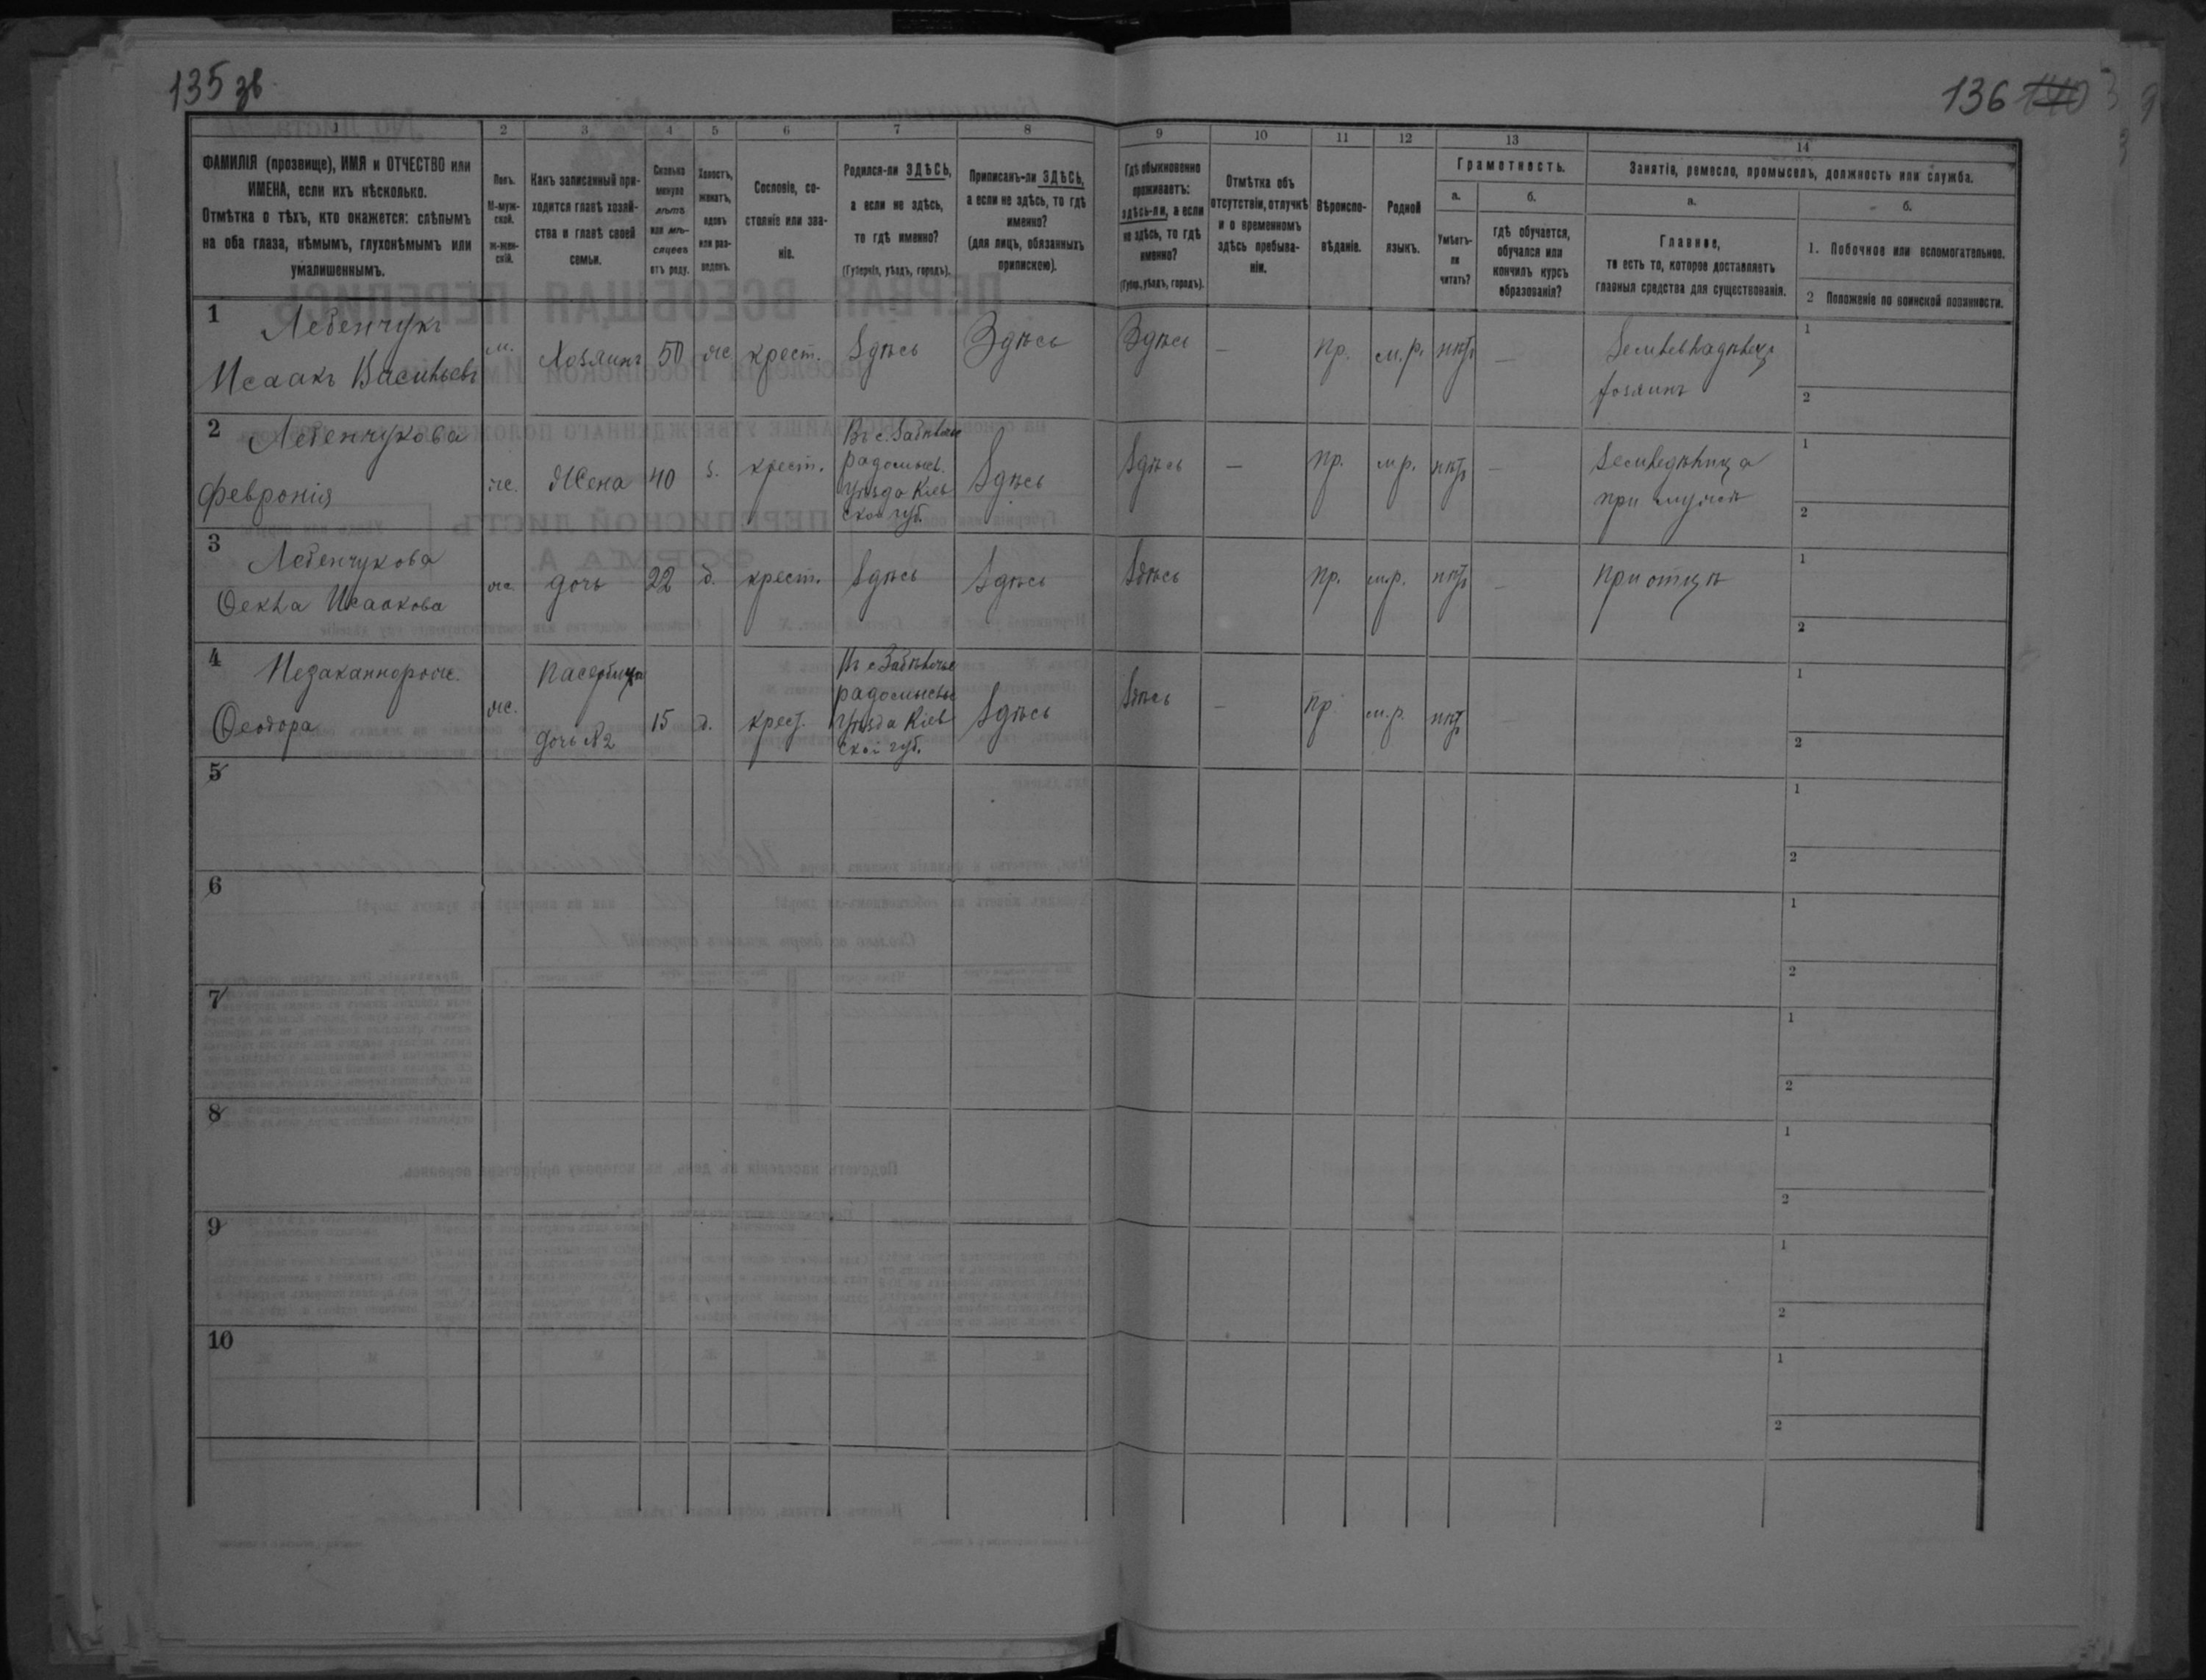 135 зв
136 140
1
2
3
4
5
6
7
8
9
10
11
12
13
14
ФАМИЛІЯ (прозвище), ИМЯ и ОТЧЕСТВО или
ИМЕНА, если ихъ нѣсколько.
Отмѣтка о тѣхъ, кто окажется: слѣпымъ
на оба глаза, нѣмымъ, глухонѣмымъ или
умалишеннымъ.
Полъ.
М-муж-
ской.
ж-жен-
скій.
Какъ записанный при-
ходится главѣ хозяй-
ства и главѣ своей
семьи.
Сколько
минуло
лѣтъ
или мѣ-
сяцевъ
отъ роду.
Холостъ,
женатъ,
вдовъ
или раз-
веденъ.
Сословіе, со-
стояніе или зва-
ніе.
Родился-ли ЗДѢСЬ,
а если не здѣсь,
то гдѣ именно?
(Губернія, уѣздъ, городъ).
Приписанъ-ли ЗДѢСЬ,
а если не здѣсь, то гдѣ
именно?
(для лицъ, обязанныхъ
припискою).
Гдѣ обыкновенно
проживаетъ:
здѣсь-ли, а если
не здѣсь, то гдѣ
именно?
(Губер., уѣздъ, городъ).
Отмѣтка объ
отсутствіи, отлучкѣ
и о временномъ
здѣсь пребыва-
ніи.
Вѣроиспо-
вѣданіе.
Родной
языкъ.
Грамотность.
а.
Умѣетъ-
ли
читать?
б.
гдѣ обучается,
обучался или
кончилъ курсъ
образованія?
Занятіе, ремесло, промыселъ, должность или служба.
а.
Главное,
то есть то, которое доставляетъ
главныя средства для существованія.
б.
1. Побочное или вспомогательное.
2 Положеніе по воинской повинности.
1
Лебенчукъ
Исаакъ Васильевъ
м.
Хозяинъ
50
же
крест.
Здѣсь
Здѣсь
Здѣсь
—
пр.
м.р.
нѣтъ
—
Землевладѣлец
хозяинъ
1
2
2
Лебенчукова
Февронія
же.
Жена
40
з.
крест.
Въ с. Забѣлочье
радомысл.
уѣзда Кіев
ской губ.
Здѣсь
Здѣсь
—
пр.
м.р.
нѣтъ
—
при мужѣ
1
2
3
Лебенчукова
Ѳекла Исаакова
же.
дочь
22
д.
крест.
Здѣсь
Здѣсь
Здѣсь
пр.
м.р.
нѣтъ
—
при отцѣ
1
2
4
Незаканнорож.
Ѳеодора
же.
Пасербица
дочь №2
15
д.
крест.
Въ с. Забѣлочье
радомысль
уѣзда Кіев
ской губ.
Здѣсь
Здѣсь
—
пр.
м.р.
нѣтъ
1
2
5
1
2
6
1
2
7
1
2
8
1
2
9
1
2
10
1
2